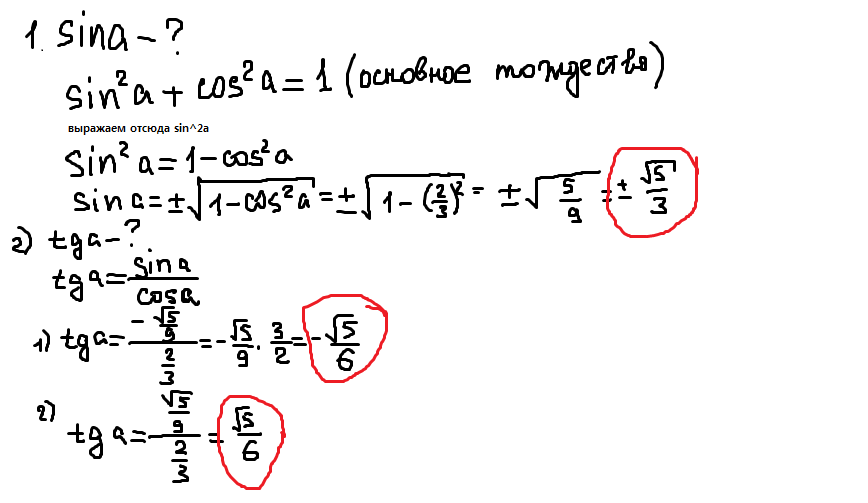 1. sina - ?
sin²a + cos²a = 1 (основное тождество)
выражаем отсюда sin^2a
sin²a = 1 - cos²a
sin a = ±√(1-cos²a) = ±√(1-(2/3)²) = ±√(5/9) = ±√5/3
2) tga - ?
tga = sina/cosa
1) tga = (-√5/9)/(2/3) = -√5/9 · 3/2 = -√5/6
2) tga = (√5/9)/(2/3) = √5/6